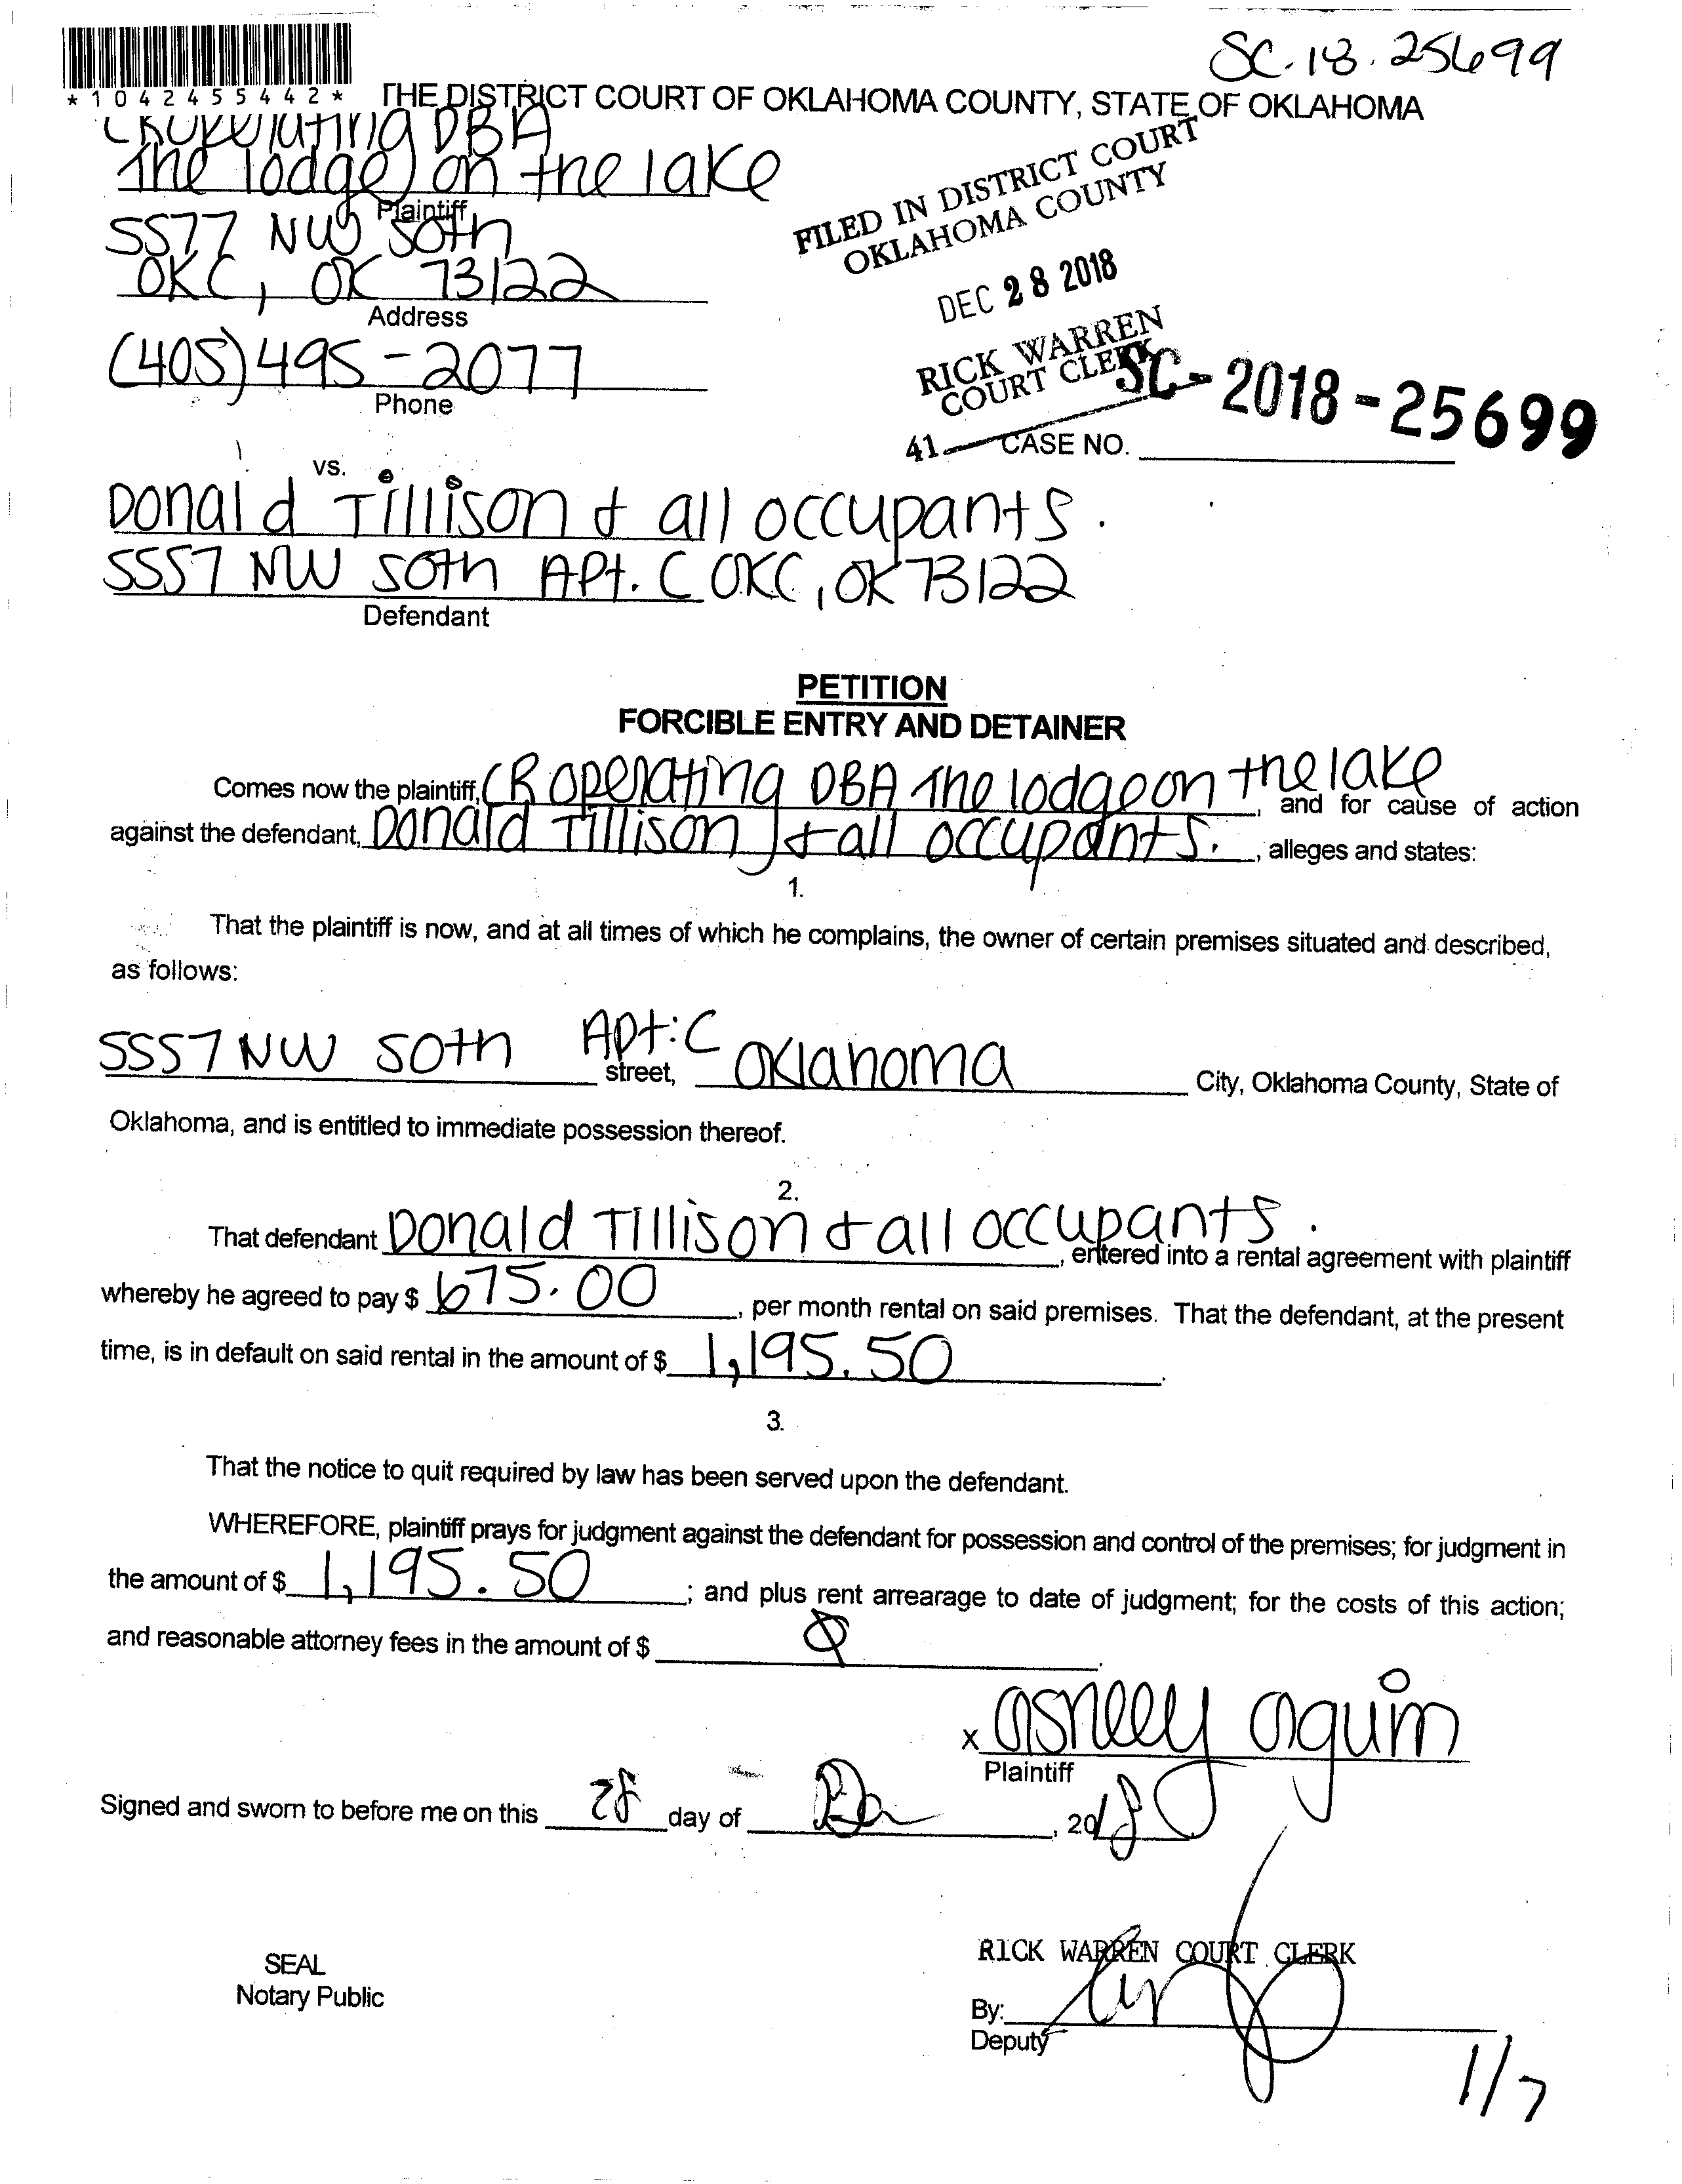 SC-18-25699
*1042455442*
THE DISTRICT COURT OF OKLAHOMA COUNTY, STATE OF OKLAHOMA
CR Operating DBA
The lodge on the lake
Plaintiff
5577 NW 50th
OKC, OK 73122
Address
(405)495-2077
Phone
FILED IN DISTRICT COURT
OKLAHOMA COUNTY
DEC 28 2018
RICK WARREN
COURT CLERK
41
SC-2018-25699
CASE NO.
vs.
Donald Tillison & all occupants.
5557 NW 50th Apt. C OKC, OK 73122
Defendant
PETITION
FORCIBLE ENTRY AND DETAINER
Comes now the plaintiff, CR Operating DBA The lodge on the lake, and for cause of action
against the defendant, Donald Tillison & all occupants., alleges and states:
1.
That the plaintiff is now, and at all times of which he complains, the owner of certain premises situated and described,
as follows:
5557 NW 50th Apt: C street, Oklahoma City, Oklahoma County, State of
Oklahoma, and is entitled to immediate possession thereof.
2.
That defendant Donald Tillison & all occupants., entered into a rental agreement with plaintiff
whereby he agreed to pay $ 675.00, per month rental on said premises. That the defendant, at the present
time, is in default on said rental in the amount of $ 1,195.50.
3.
That the notice to quit required by law has been served upon the defendant.
WHEREFORE, plaintiff prays for judgment against the defendant for possession and control of the premises; for judgment in
the amount of $ 1,195.50; and plus rent arrearage to date of judgment; for the costs of this action;
and reasonable attorney fees in the amount of $ Ø.
x Ashley Aguin
Plaintiff
Signed and sworn to before me on this 28 day of Dec, 2018
SEAL
Notary Public
RICK WARREN COURT CLERK
By:
Deputy
1/7